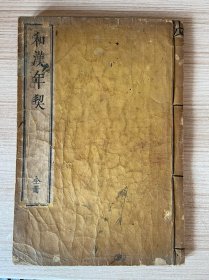 和漢年契
全冊